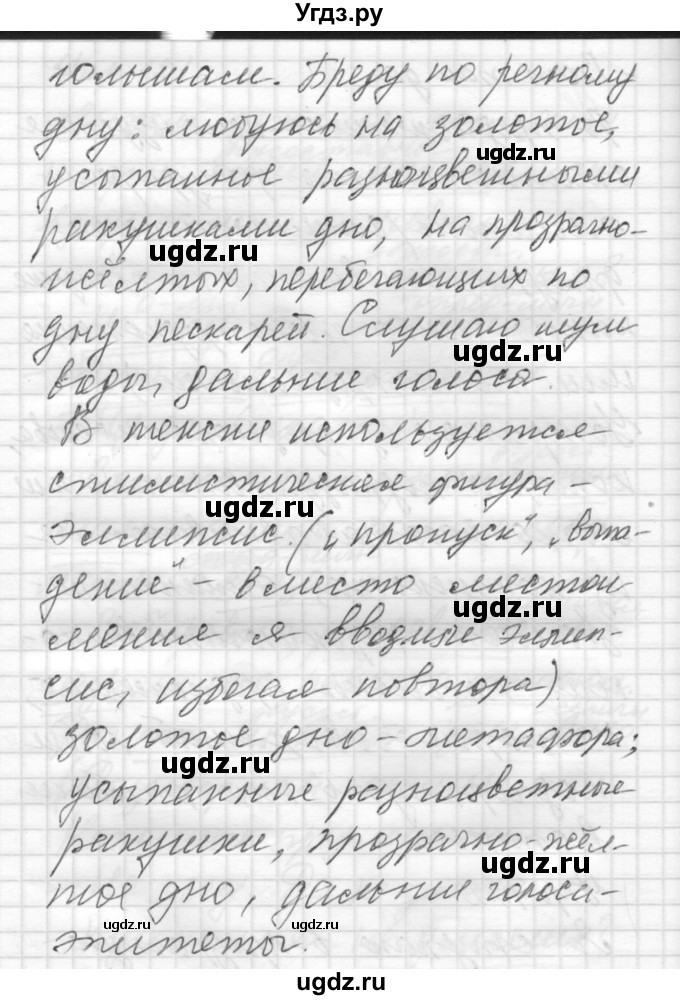 Угдз.ру
голышам. Бреду по речному
дну: любуюсь на золотое,
ugdz.ru
усыпанное разноцветными
ракушками дно, на прозрачно-
ugdz.ru
жёлтых, перебегающих по
дну пескарей. Слушаю шум
ugdz.ru
воды, дальние голоса.
В тексте используется
стилистическая фигура -
ugdz.ru
Эллипсис. („пропуск", „выпа-
дение" - вместо местои
ugdz.ru
мения я вводмые эллип-
сис, избегая повтора)
золотое дно - метафора;
ugdz.ru
усыпанные разноцветные
ракушки, прозрачно-жёл-
ugdz.ru
тое дно, дальние голоса-
ugdz.ru
ugdz.ru
эпитеты.
ugdz.ru